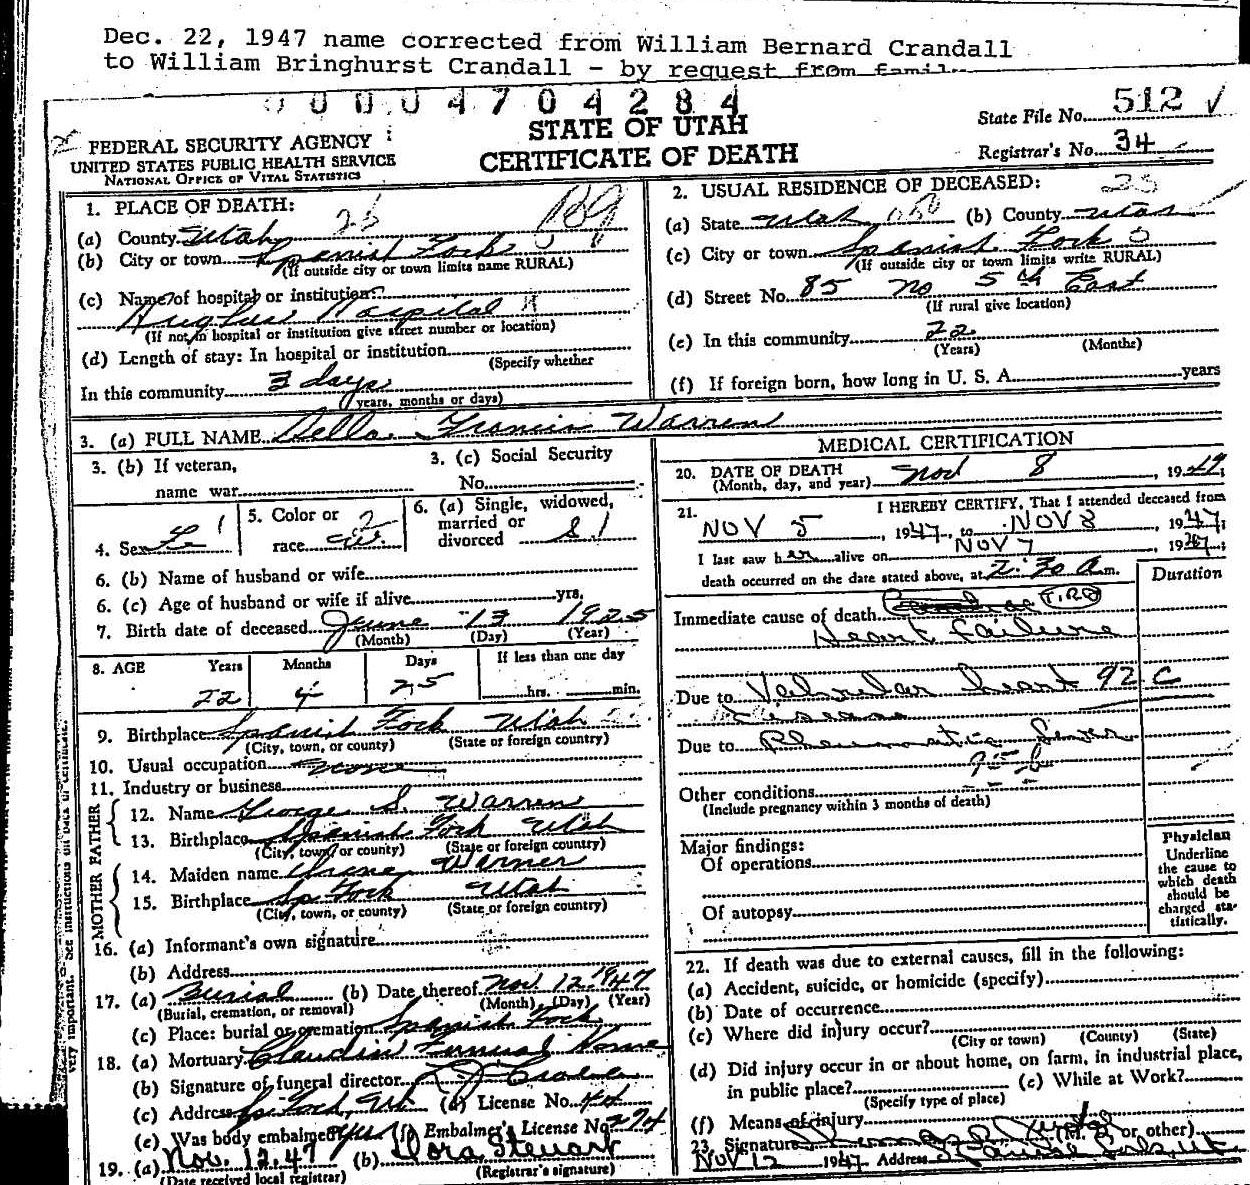 Dec. 22, 1947 name corrected from William Bernard Crandall
to William Bringhurst Crandall - by request from
00004704284
FEDERAL SECURITY AGENCY
UNITED STATES PUBLIC HEALTH SERVICE
NATIONAL OFFICE OF VITAL STATISTICS
STATE OF UTAH
CERTIFICATE OF DEATH
State File No. 512 ✓
Registrar's No. 34
1. PLACE OF DEATH:
(a) County Utah
(b) City or town Spanish Fork
(If outside city or town limits name RURAL)
(c) Name of hospital or institution:
Hughes Hospital
(If not in hospital or institution give street number or location)
(d) Length of stay: In hospital or institution
(Specify whether
In this community 3 days
years, months or days)
2. USUAL RESIDENCE OF DECEASED:
(a) State Utah (b) County Utah
(c) City or town Spanish Fork
(If outside city or town limits write RURAL)
(d) Street No. 85 No 5th East
(If rural give location)
(e) In this community 22
(Years) (Months)
(f) If foreign born, how long in U. S. A. years
3. (a) FULL NAME Della Francis Warren
3. (b) If veteran,
name war
3. (c) Social Security
No.
4. Sex Fe
5. Color or
race W.
6. (a) Single, widowed,
married or
divorced S
6. (b) Name of husband or wife
6. (c) Age of husband or wife if alive yrs.
7. Birth date of deceased June 13 1925
(Month) (Day) (Year)
8. AGE Years Months Days If less than one day
22 4 25 hrs. min.
9. Birthplace Spanish Fork Utah
(City, town, or county) (State or foreign country)
10. Usual occupation none
11. Industry or business
FATHER
12. Name George S. Warren
13. Birthplace Spanish Fork Utah
(City, town, or county) (State or foreign country)
MOTHER
14. Maiden name Warner
15. Birthplace Sp Fork Utah
(City, town, or county) (State or foreign country)
16. (a) Informant's own signature
(b) Address
17. (a) Burial (b) Date thereof Nov. 12. 1947
(Burial, cremation, or removal) (Month) (Day) (Year)
(c) Place: burial or cremation Spanish Fork
18. (a) Mortuary Claudin Funeral Home
(b) Signature of funeral director
(c) Address Sp Fork, Ut (d) License No. 44
(e) Was body embalmed yes (f) Embalmer's License No 274
19. (a) Nov. 12. 47 (b) Dora Steuart
(Date received local registrar) (Registrar's signature)
MEDICAL CERTIFICATION
20. DATE OF DEATH
(Month, day, and year) Nov 8, 1947
21. I HEREBY CERTIFY, That I attended deceased from
NOV 5, 1947, to NOV 8, 1947;
I last saw her alive on NOV 7, 1947;
death occurred on the date stated above, at 2:30 a m.
Duration
Immediate cause of death
Heart Failure
Due to Valvular heart 92 C
Disease
Due to Rheumatic fever
Other conditions
(Include pregnancy within 3 months of death)
Major findings:
Of operations
Of autopsy
Physician
Underline
the cause to
which death
should be
charged sta-
tistically.
22. If death was due to external causes, fill in the following:
(a) Accident, suicide, or homicide (specify)
(b) Date of occurrence
(c) Where did injury occur?
(City or town) (County) (State)
(d) Did injury occur in or about home, on farm, in industrial place,
in public place? (c) While at Work?
(Specify type of place)
(f) Means of injury
23. Signature (M. D. or other)
NOV 12 1947 Address Spanish Fork, Ut